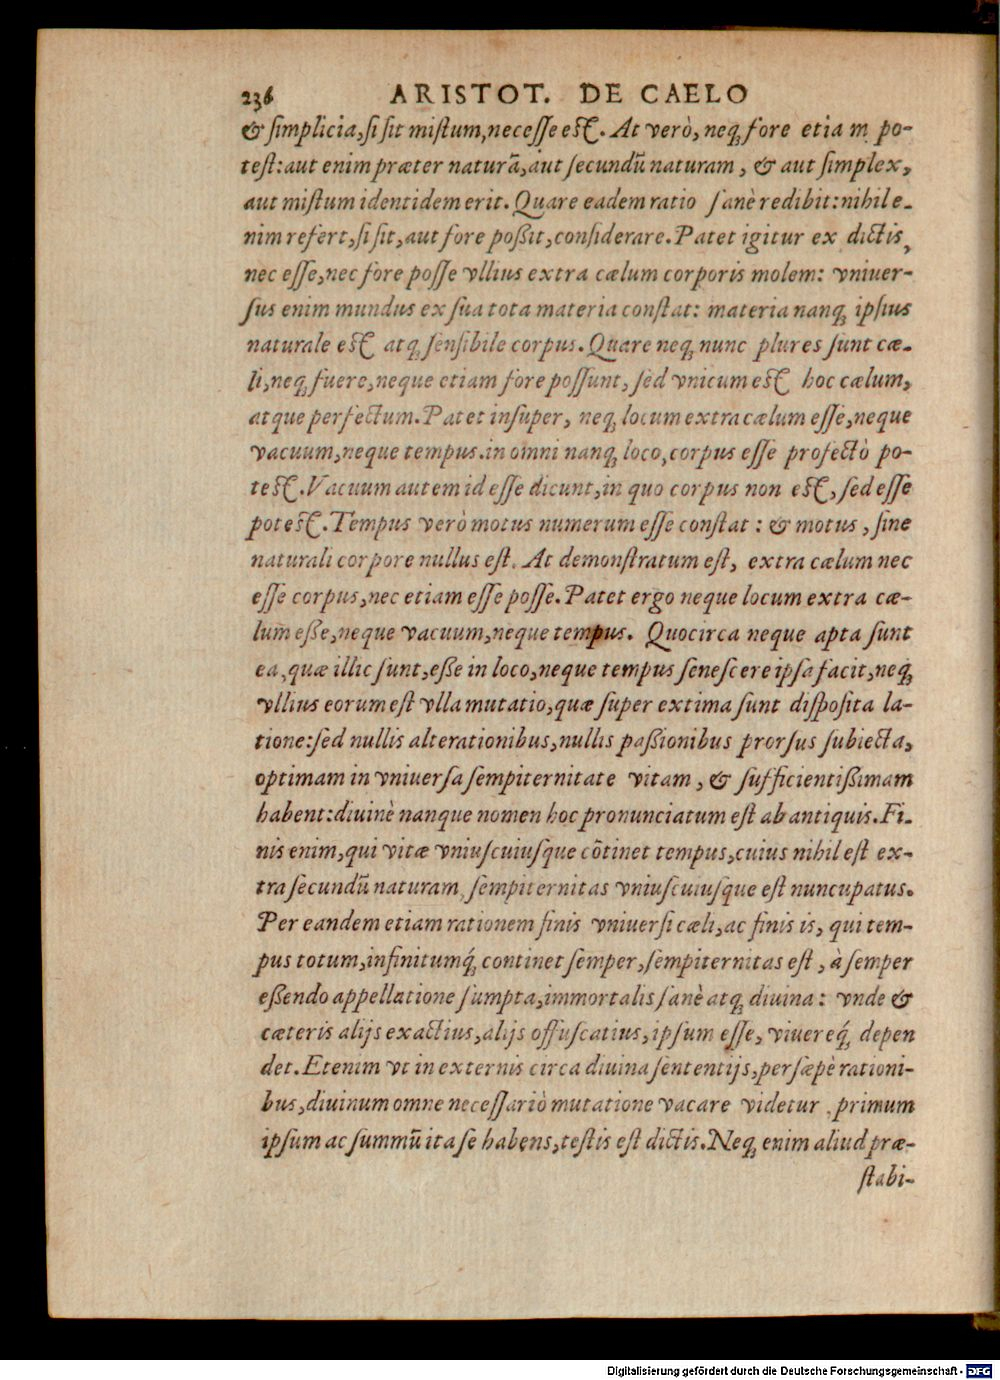 236 ARISTOT. DE CAELO
& simplicia, si sit mistum, necesse est. At verò, neq; fore etia m po-
test: aut enim præter naturā, aut secundū naturam, & aut simplex,
aut mistum identidem erit. Quare eadem ratio sanè redibit: nihil e-
nim refert, si sit, aut fore poßit, considerare. Patet igitur ex dictis,
nec esse, nec fore posse vllius extra cælum corporis molem: vniuer-
sus enim mundus ex sua tota materia constat: materia nanq; ipsius
naturale est atq; sensibile corpus. Quare neq; nunc plures sunt cæ-
li, neq; fuere, neque etiam fore possunt, sed vnicum est hoc cælum,
atque perfectum. Patet insuper, neq; locum extra cælum esse, neque
vacuum, neque tempus. in omni nanq; loco, corpus esse profectò po-
test. Vacuum autem id esse dicunt, in quo corpus non est, sed esse
potest. Tempus verò motus numerum esse constat: & motus, sine
naturali corpore nullus est. At demonstratum est, extra cælum nec
esse corpus, nec etiam esse posse. Patet ergo neque locum extra cæ-
lum eße, neque vacuum, neque tempus. Quocirca neque apta sunt
ea, quæ illic sunt, eße in loco, neque tempus senescere ipsa facit, neq;
vllius eorum est vlla mutatio, quæ super extima sunt disposita la-
tione: sed nullis alterationibus, nullis paßionibus prorsus subiecta,
optimam in vniuersa sempiternitate vitam, & sufficientißimam
habent: diuinè nanque nomen hoc pronunciatum est ab antiquis. Fi-
nis enim, qui vitæ vniuscuiusque cōtinet tempus, cuius nihil est ex-
tra secundū naturam, sempiternitas vniuscuiusque est nuncupatus.
Per eandem etiam rationem finis vniuersi cæli, ac finis is, qui tem-
pus totum, infinitumq́; continet semper, sempiternitas est, à semper
eßendo appellatione sumpta, immortalis sanè atq; diuina: vnde &
cæteris alijs exactius, alijs offuscatius, ipsum esse, viuereq́; depen
det. Etenim vt in externis circa diuina sententijs, persæpè rationi-
bus, diuinum omne necessariò mutatione vacare videtur, primum
ipsum ac summū ita se habens, testis est dictis. Neq; enim aliud præ-
stabi-
Digitalisierung gefördert durch die Deutsche Forschungsgemeinschaft - DFG